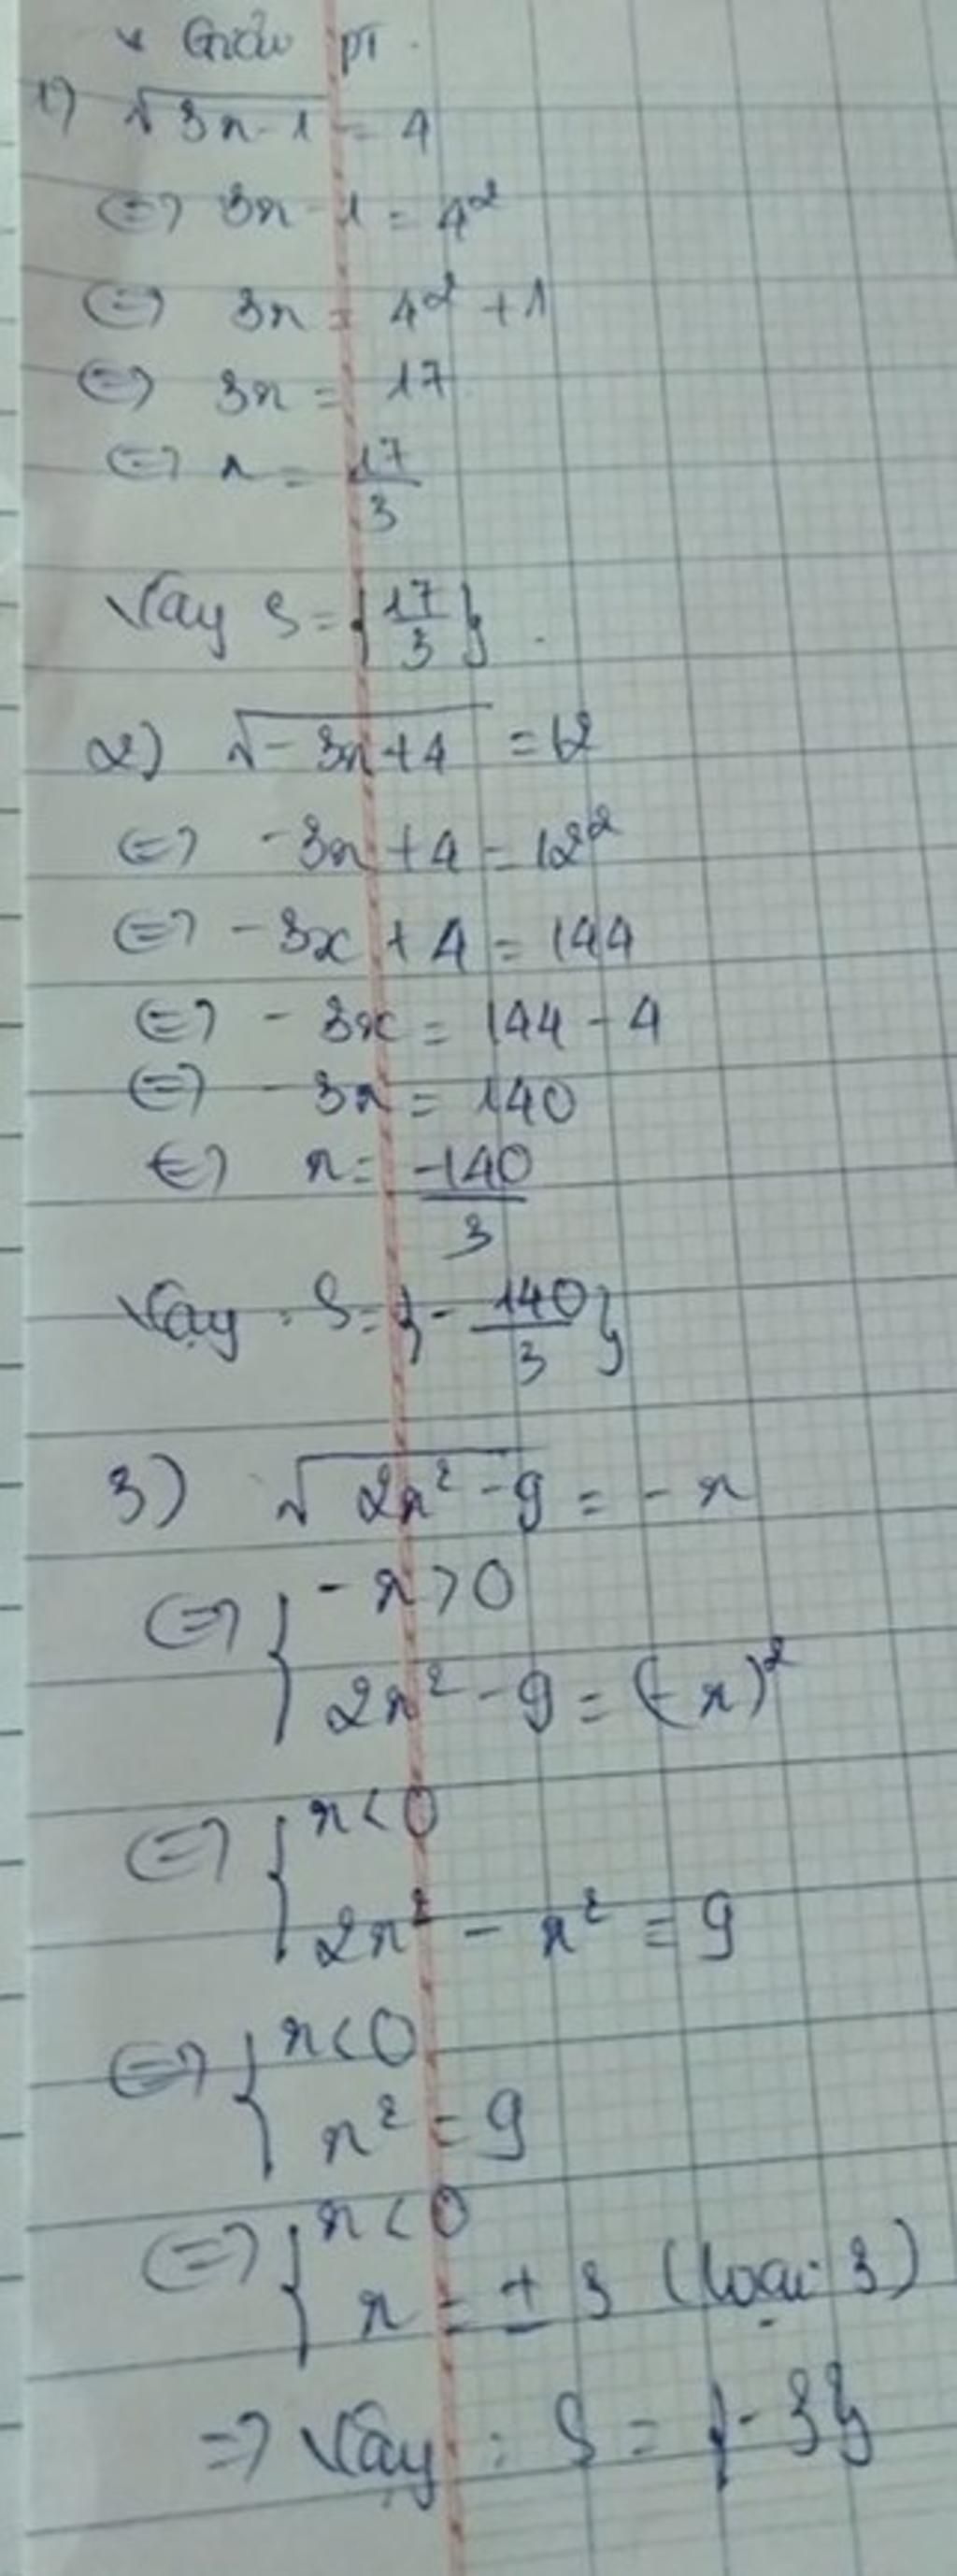 * Giải pt.
1) √3x-1 = 4
<=> 3x - 1 = 4²
<=> 3x = 4² + 1
<=> 3x = 17
<=> x = 17/3
Vậy S = {17/3}.
2) √-3x+4 = 12
<=> -3x + 4 = 12²
<=> -3x + 4 = 144
<=> -3x = 144 - 4
<=> -3x = 140
<=> x = -140/3
Vậy : S = {-140/3}
3) √2x²-9 = -x
<=> { -x > 0
2x² - 9 = (-x)²
<=> { x < 0
2x² - x² = 9
<=> { x < 0
x² = 9
<=> { x < 0
x = ± 3 (loại 3)
=> Vậy : S = {-3}